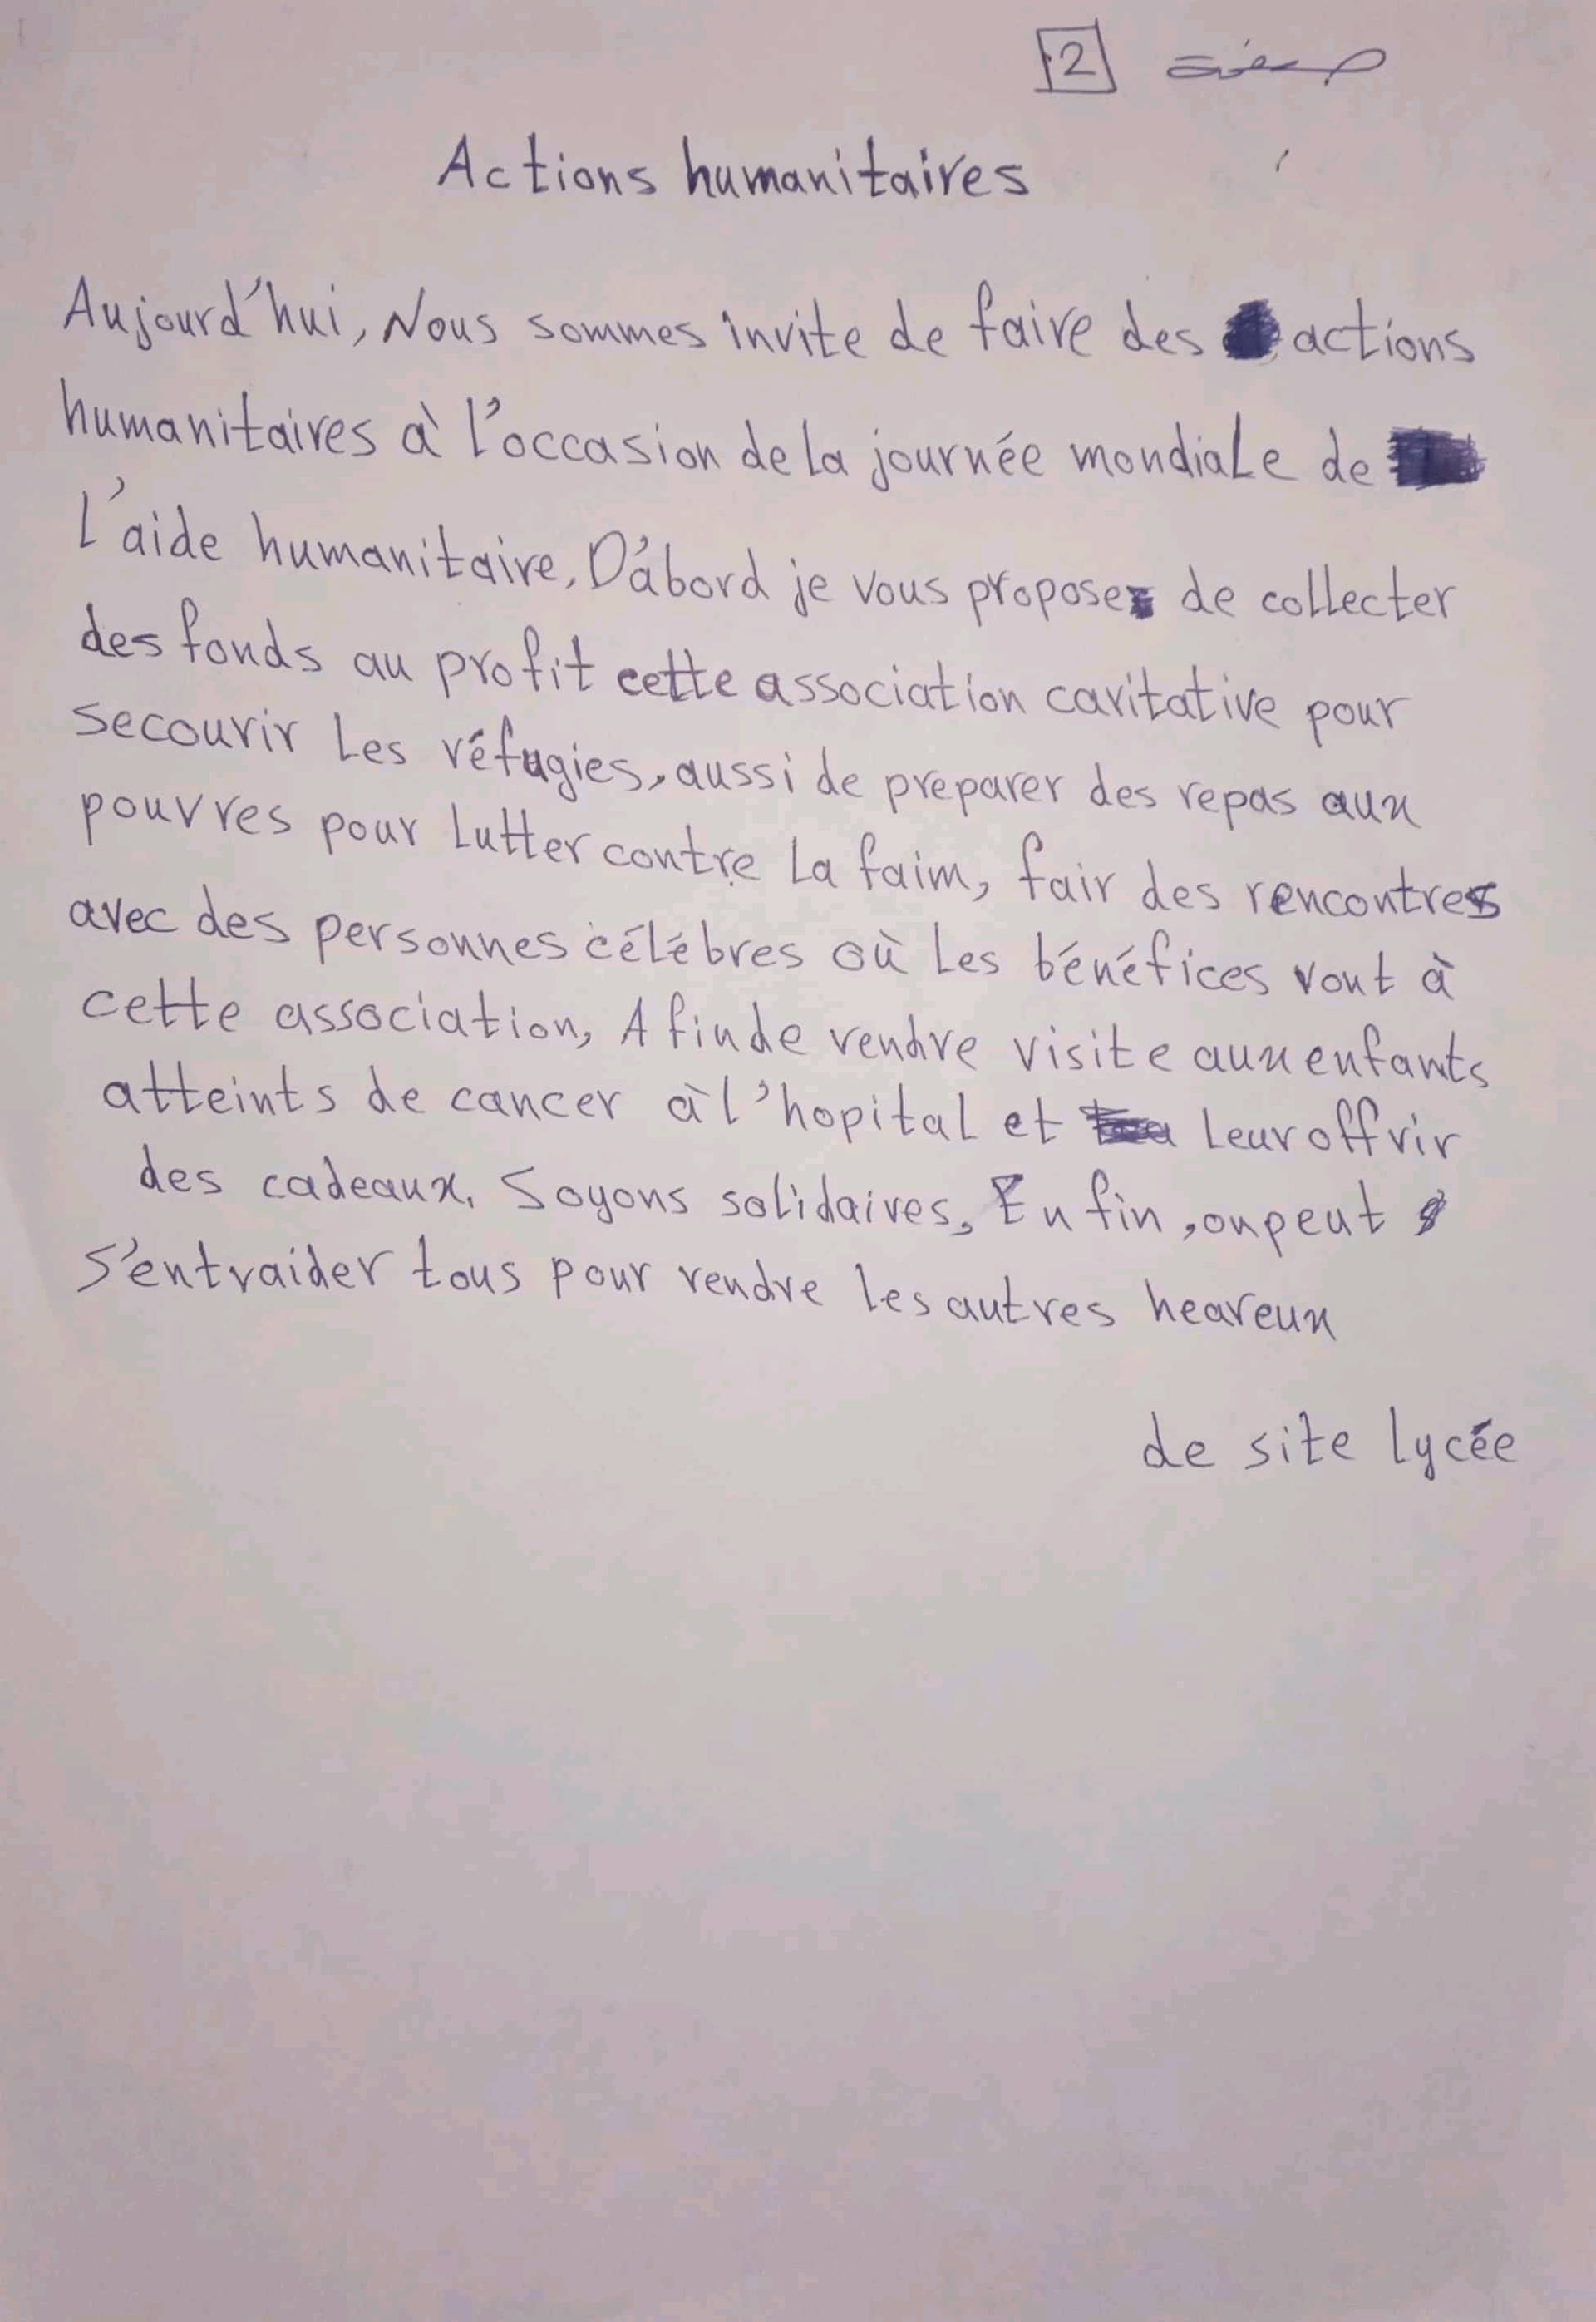 صفحة 2
Actions humanitaires
Aujourd'hui, Nous sommes invite de faire des actions
humanitaires à l'occasion de la journée mondiale de
l'aide humanitaire, D'abord je vous propose de collecter
des fonds au profit cette association caritative pour
secourir les réfugies, aussi de preparer des repas aux
pouvres pour lutter contre la faim, fair des rencontres
avec des personnes célébres où les bénéfices vont à
cette association, Afin de rendre visite aux enfants
atteints de cancer à l'hopital et leur offrir
des cadeaux. Soyons solidaires, Enfin, on peut
s'entraider tous pour rendre les autres heareux
de site lycée